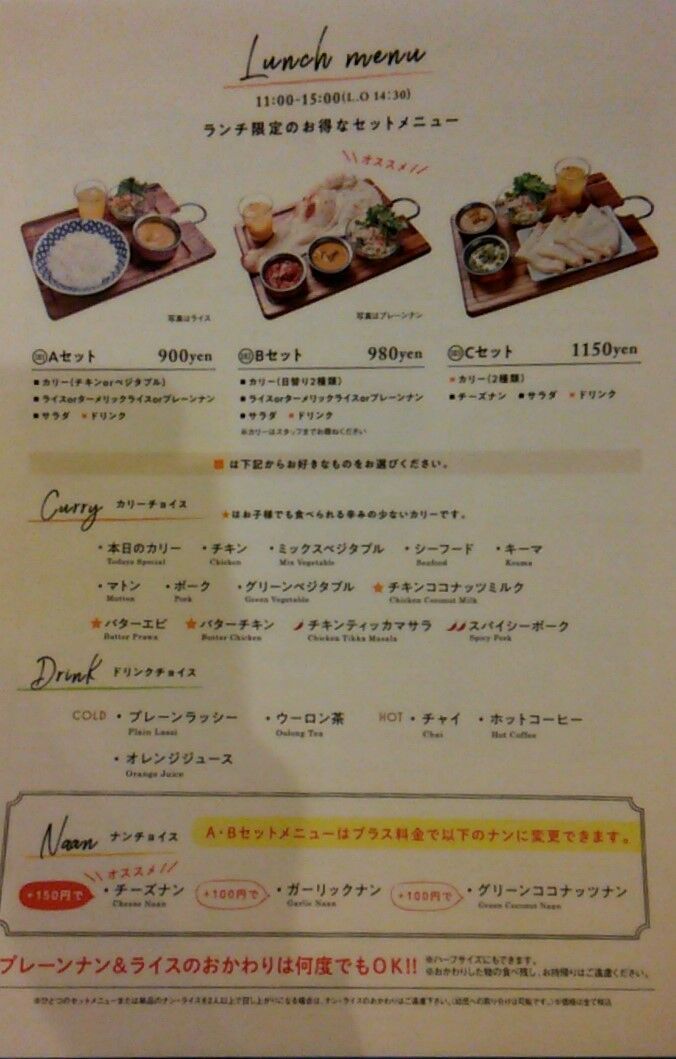 Lunch menu
11:00-15:00(L.O 14:30)
ランチ限定のお得なセットメニュー
オススメ!
写真はライス
写真はプレーンナン
Aセット 900yen
Bセット 980yen
Cセット 1150yen
■カリー(チキンorベジタブル)
■ライスorターメリックライスorプレーンナン
■サラダ ■ドリンク
■カリー(日替り2種類)
■ライスorターメリックライスorプレーンナン
■サラダ ■ドリンク
※カリーはスタッフまでお尋ねください
■カリー(2種類)
■チーズナン ■サラダ ■ドリンク
■は下記からお好きなものをお選びください。
Curry カリーチョイス ★はお子様でも食べられる辛みの少ないカリーです。
・本日のカリー ・チキン ・ミックスベジタブル ・シーフード ・キーマ
Todays Special Chicken Mix Vegetable Seafood Keema
・マトン ・ポーク ・グリーンベジタブル ★チキンココナッツミルク
Mutton Pork Green Vegetable Chicken Coconut Milk
★バターエビ ★バターチキン チキンティッカマサラ スパイシーポーク
Butter Prawn Butter Chicken Chicken Tikka Masala Spicy Pork
Drink ドリンクチョイス
COLD ・プレーンラッシー ・ウーロン茶 HOT ・チャイ ・ホットコーヒー
Plain Lassi Oolong Tea Chai Hot Coffee
・オレンジジュース
Orange Juice
Naan ナンチョイス A・Bセットメニューはプラス料金で以下のナンに変更できます。
オススメ!
+150円で ・チーズナン +100円で ・ガーリックナン +100円で ・グリーンココナッツナン
Cheese Naan Garlic Naan Green Coconut Naan
プレーンナン&ライスのおかわりは何度でもOK!!
※ハーフサイズにもできます。
※おかわりした物の食べ残し、お持帰りはご遠慮ください。
※ひとつのセットメニューまたは単品のナン・ライスを2人以上で召し上がりになる場合は、ナン・ライスのおかわりはご遠慮下さい。(幼児への取り分けは可能です。)※価格は全て税込